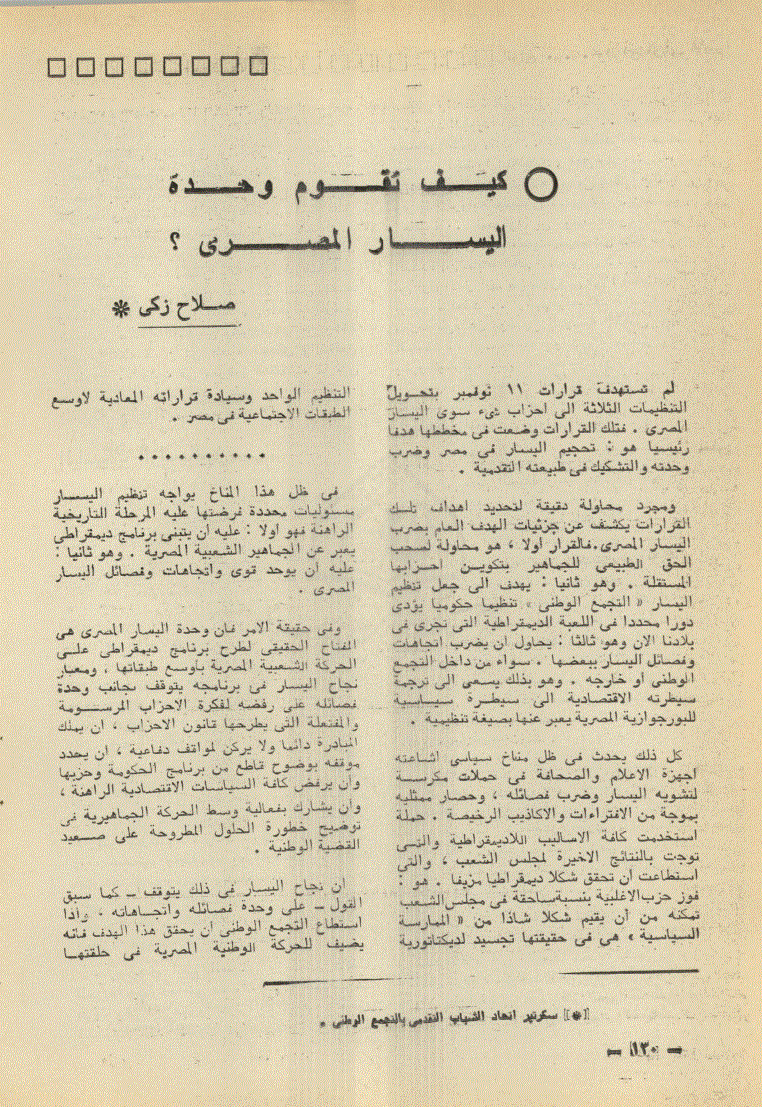 كيف تقوم وحدة
اليسار المصرى ؟
صلاح زكى *
لم تستهدف قرارات ١١ نوفمبر بتحويل
التنظيمات الثلاثة الى احزاب شىء سوى اليسار
المصرى . فتلك القرارات وضعت فى مخططها هدفا
رئيسيا هو : تحجيم اليسار فى مصر وضرب
وحدته والتشكيك فى طبيعته التقدمية .
ومجرد محاولة دقيقة لتحديد اهداف تلك
القرارات يكشف عن جزئيات الهدف العام بضرب
اليسار المصرى. فالقرار اولا ، هو محاولة لسحب
الحق الطبيعى للجماهير بتكوين احزابها
المستقلة . وهو ثانيا : يهدف الى جعل تنظيم
اليسار « التجمع الوطنى » تنظيما حكوميا يؤدى
دورا محددا فى اللعبة الديمقراطية التى تجرى فى
بلادنا الان وهو ثالثا : يحاول ان يضرب اتجاهات
وفصائل اليسار ببعضها . سواء من داخل التجمع
الوطنى او خارجه . وهو بذلك يسعى الى ترجمة
سيطرته الاقتصادية الى سيطرة سياسية
للبورجوازية المصرية يعبر عنها بصيغة تنظيمية .
كل ذلك يحدث فى ظل مناخ سياسى اشاعته
اجهزة الاعلام والصحافة فى حملات مكرسة
لتشويه اليسار وضرب فصائله ، وحصار ممثليه
بموجة من الافتراءات والاكاذيب الرخيصة . حملة
استخدمت كافة الاساليب اللاديمقراطية والتى
توجت بالنتائج الاخيرة لمجلس الشعب ، والتى
استطاعت أن تحقق شكلا ديمقراطيا مزيفا . هو :
فوز حزب الاغلبية بنسبة ساحقة فى مجلس الشعب
تمكنه من أن يقيم شكلا شاذا من « الممارسة
السياسية » هى فى حقيقتها تجسيد لديكتاتورية
التنظيم الواحد وسيادة قراراته المعادية لاوسع
الطبقات الاجتماعية فى مصر .
• • • • • • • • • •
فى ظل هذا المناخ يواجه تنظيم اليسار
مسئوليات محددة فرضتها عليه المرحلة التاريخية
الراهنة فهو اولا : عليه أن يتبنى برنامج ديمقراطى
يعبر عن الجماهير الشعبية المصرية . وهو ثانيا :
عليه أن يوحد قوى واتجاهات وفصائل اليسار
المصرى .
وفى حقيقة الامر فان وحدة اليسار المصرى هى
المفتاح الحقيقى لطرح برنامج ديمقراطى على
الحركة الشعبية المصرية بأوسع طبقاتها ، ومعيار
نجاح اليسار فى برنامجه يتوقف بجانب وحدة
فصائله على رفضه لفكرة الاحزاب المرسومة
والمفتعلة التى يطرحها قانون الاحزاب ، ان يملك
المبادرة دائما ولا يركن لمواقف دفاعية ، ان يحدد
موقفه بوضوح قاطع من برنامج الحكومة وحزبها
وأن يرفض كافة السياسات الاقتصادية الراهنة ،
وان يشارك بفعالية وسط الحركة الجماهيرية فى
توضيح خطورة الحلول المطروحة على صعيد
القضية الوطنية .
ان نجاح اليسار فى ذلك يتوقف ـ كما سبق
القول ـ على وحدة فصائله واتجاهاته ، واذا
استطاع التجمع الوطنى أن يحقق هذا الهدف فانه
يضيف للحركة الوطنية المصرية فى حلقتها
[*] سكرتير اتحاد الشباب التقدمى بالتجمع الوطنى .
ـ ١٣٠ ـ